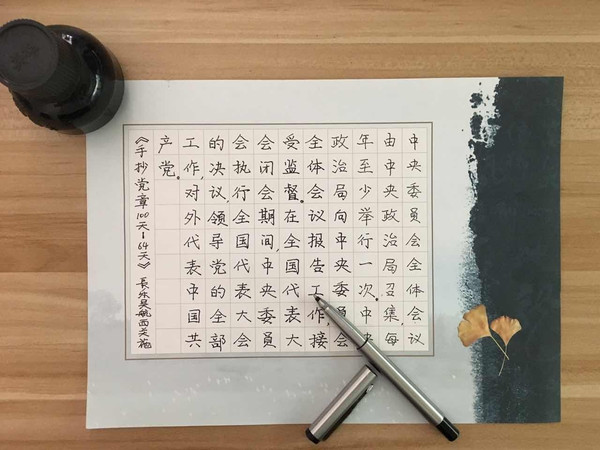 中央委员会全体会议
由中央政治局召集,每
年至少举行一次。中央
政治局向中央委员会
全体会议报告工作,接
受监督。在全国代表大
会闭会期间,中央委员
会执行全国代表大会
的决议,领导党的全部
工作,对外代表中国共
产党。
《手抄党章100天-64天》長乐吴航西关